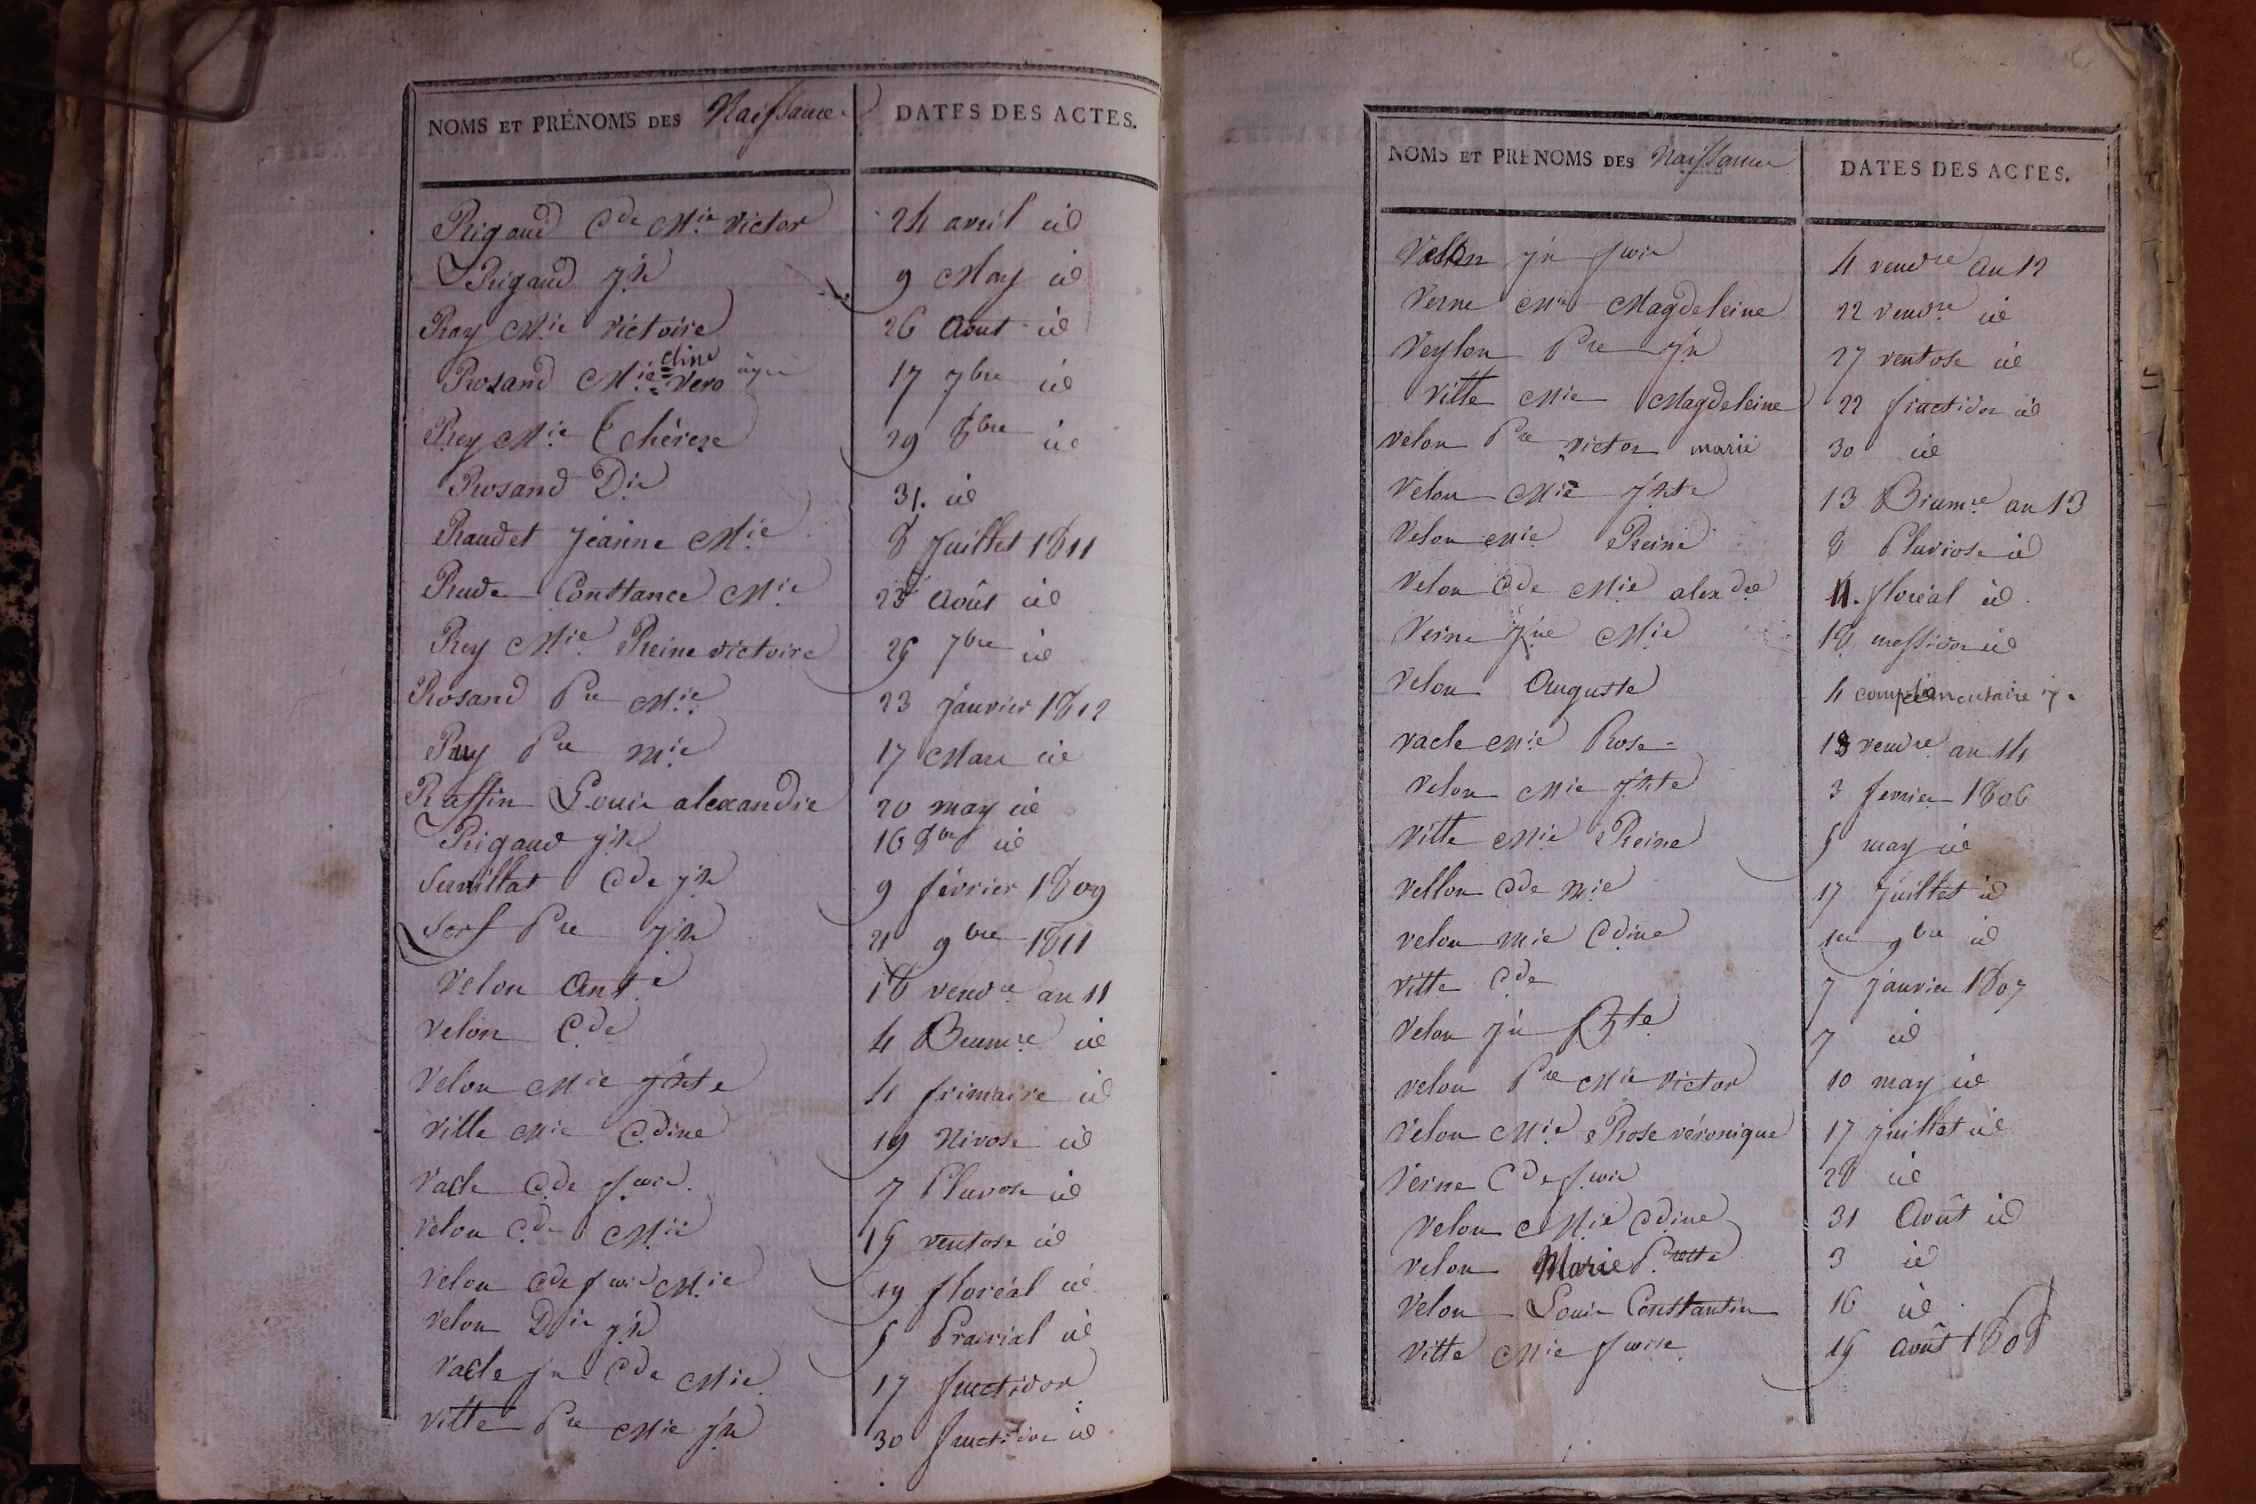 NOMS ET PRÉNOMS DES Naissance DATES DES ACTES.
Rigaud Cde Mie victor 24 avril id
Rigaud jh 9 May id
Ray Mie victoire 26 Aout id
Rosand Mie cline vero 17 7bre id
Rey Mie Thérese 29 8bre id
Rosand Die 31. id
Raudet jeanne Mie 8 juillet 1811
Rude Constance Mie 23 Août id
Rey Mie Reine victoire 25 7bre id
Rosand Pre Mie 23 janvier 1812
Ray Pre Mie 17 Mars id
Raffin Louis alexandre 20 may id
Rigaud jh 16 8bre id
Cde jh 9 février 1809
Serf Pre jh 21 9bre 1811
Velon Ante 18 vendre an 11
Velon Cde 4 Brumre id
Velon Mie jhte 4 frimaire id
Ville Mie Cdine 19 Nivose id
Vacle Cde fwis 7 Pluvose id
Velon Cde Mie 15 ventose id
Velon Cde fwis Mie 19 floréal id
Velon Die jh 5 Prairial id
Vacle jn Cde Mie 17 fructidor
Vitte Pre Mie jh 30 fructidor id
NOMS ET PRÉNOMS DES Naissance DATES DES ACTES.
Velon jn fwis 4 vendre an 12
Verne Mie Magdeleine 22 vendre id
Veylon Pre jh 27 ventose id
Vitte Mie Magdeleine 22 fructidor id
velon Pre victor marie 30 id
Velon Mie jhte 13 Brumre an 13
Velon Mie Reine 8 Pluviose id
Velon Cde Mie alexdre 11. floréal id
Verne jne Mie 18 messidor id
Velon Auguste 4 complémentaire
Vacle Mie Rose 18 vendre an 14
Velon Mie jhte 3 fevrier 1806
Vitte Mie Reine 5 may id
Vellon Cde Mie 17 juillet id
velon Mie Cdine 1er 9bre id
Vitte Cde 7 janvier 1807
Velon jn Bte 7 id
velon Pre Mie victor 10 may id
Velon Mie Rose véronique 17 juillet id
Verne Cde fwis 28 id
Velon Mie Cdine 31 Août id
velon Marie Prette 3 id
Velon Louis Constantin 16 id
Vitte Mie fwise 15 août 1808